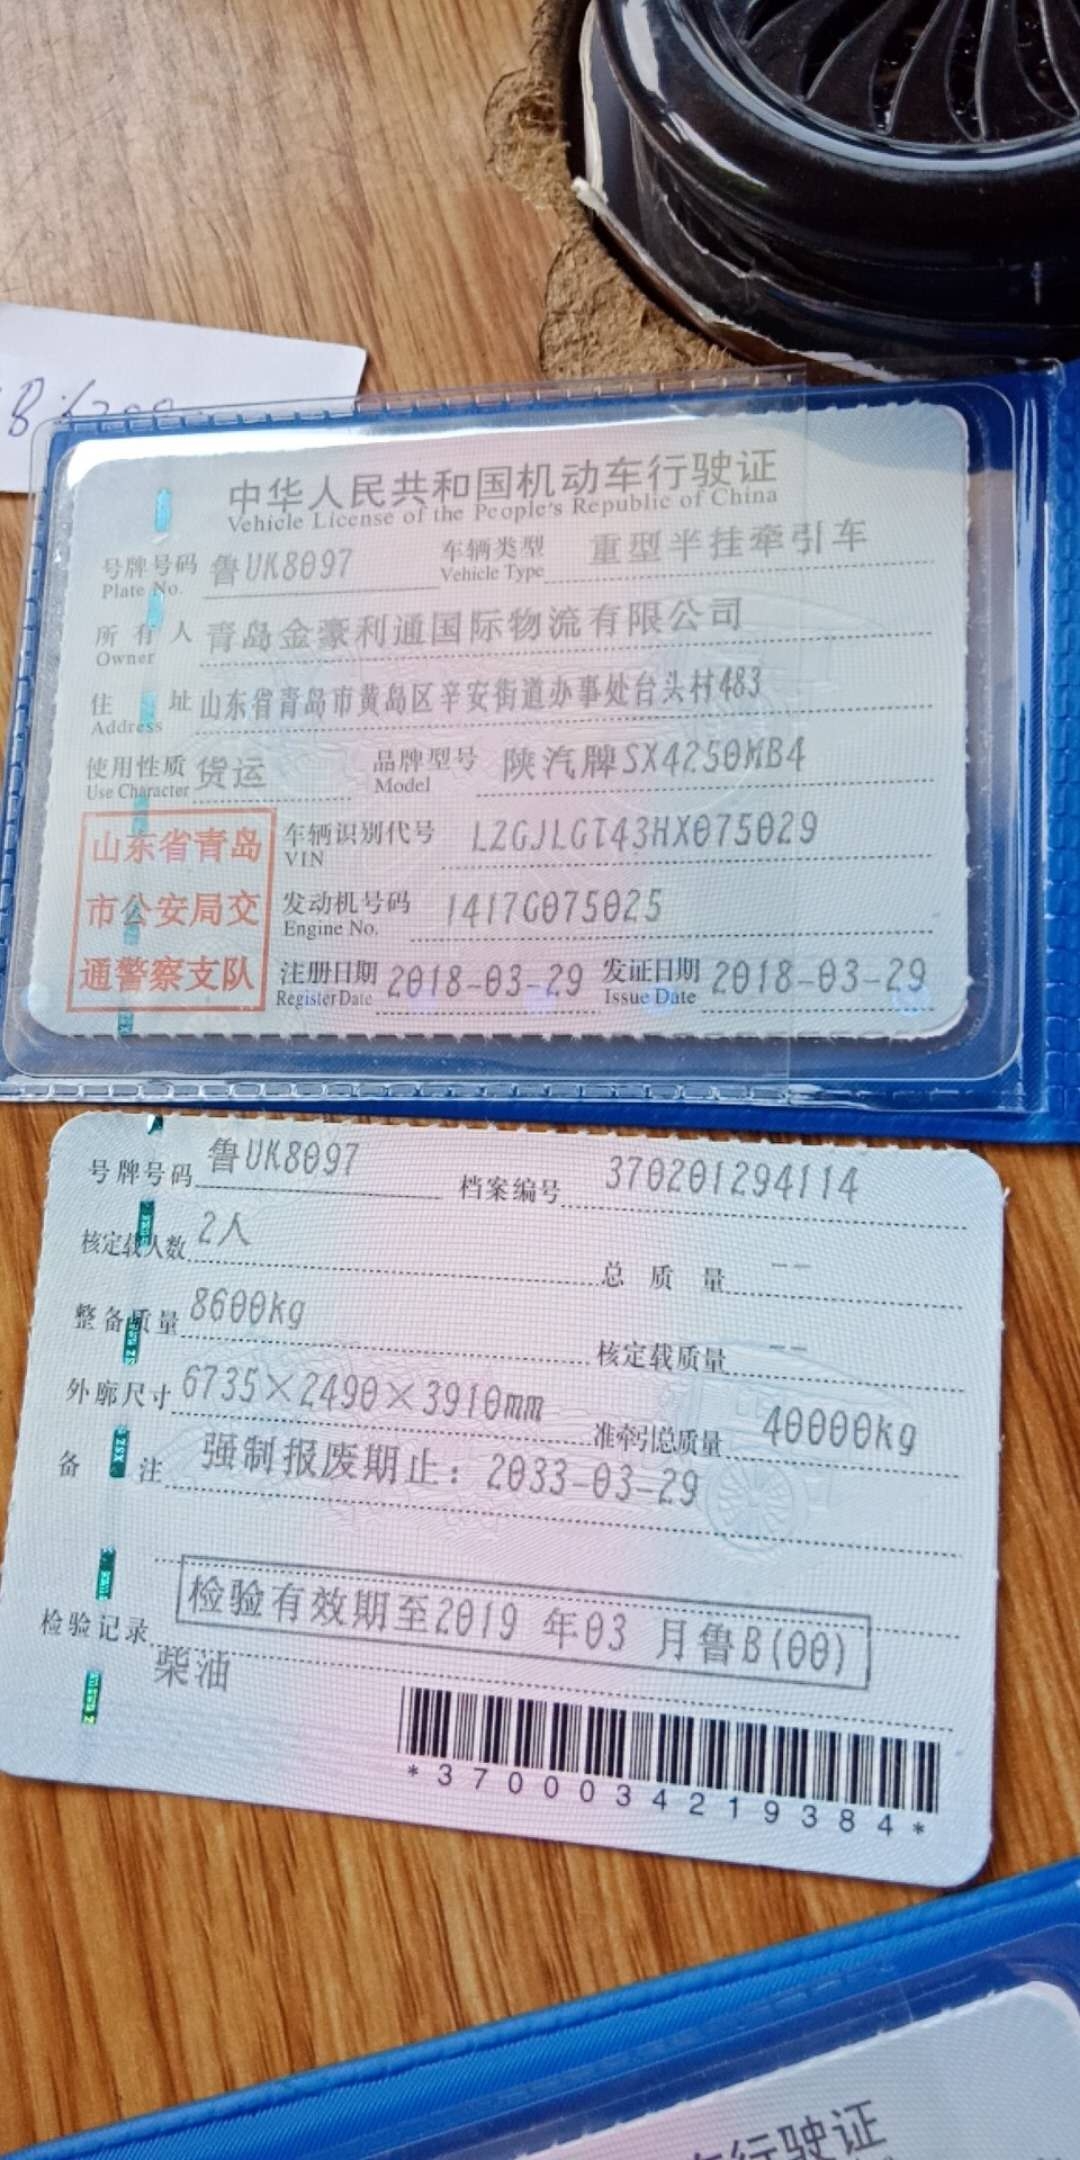 中华人民共和国机动车行驶证
Vehicle License of the People's Republic of China
号牌号码 鲁UK8097 车辆类型 重型半挂牵引车
Plate No. Vehicle Type
所有人 青岛金豪利通国际物流有限公司
Owner
住址 山东省青岛市黄岛区辛安街道办事处台头村483
Address
使用性质 货运 品牌型号 陕汽牌SX4250MB4
Use Character Model
山东省青岛
市公安局交
通警察支队
车辆识别代号 LZGJLGT43HX075029
VIN
发动机号码 1417G075025
Engine No.
注册日期 2018-03-29 发证日期 2018-03-29
Register Date Issue Date
号牌号码 鲁UK8097 档案编号 370201294114
核定载人数 2人 总质量 --
整备质量 8600kg 核定载质量 --
外廓尺寸 6735×2490×3910mm 准牵引总质量 40000kg
备注 强制报废期止：2033-03-29
检验有效期至2019 年03 月鲁B(00)
检验记录
柴油
*3700034219384*
行驶证